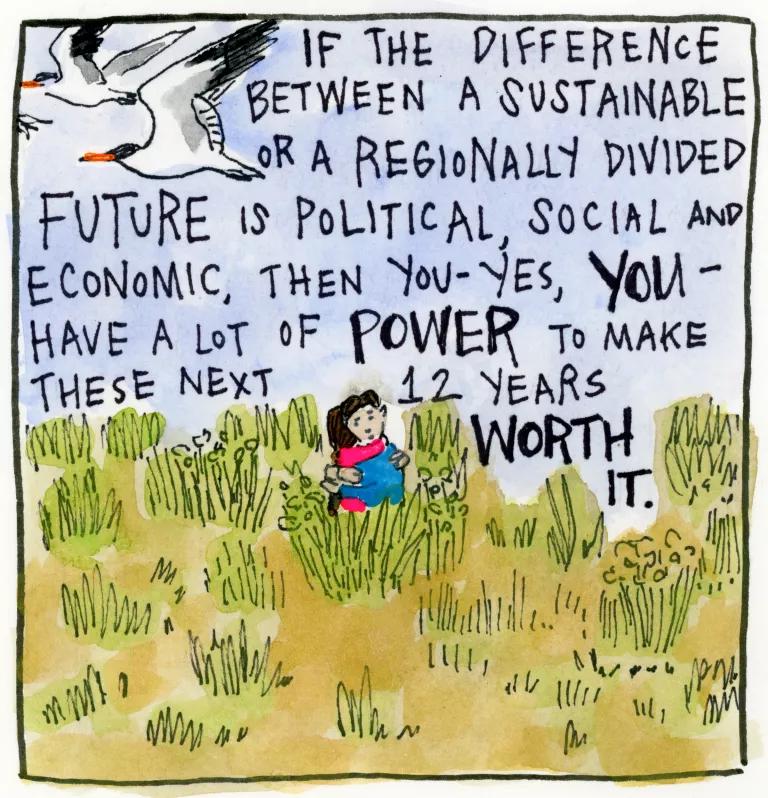 IF THE DIFFERENCE
BETWEEN A SUSTAINABLE
OR A REGIONALLY DIVIDED
FUTURE IS POLITICAL, SOCIAL AND
ECONOMIC, THEN YOU-YES, YOU-
HAVE A LOT OF POWER TO MAKE
THESE NEXT 12 YEARS
WORTH
IT.